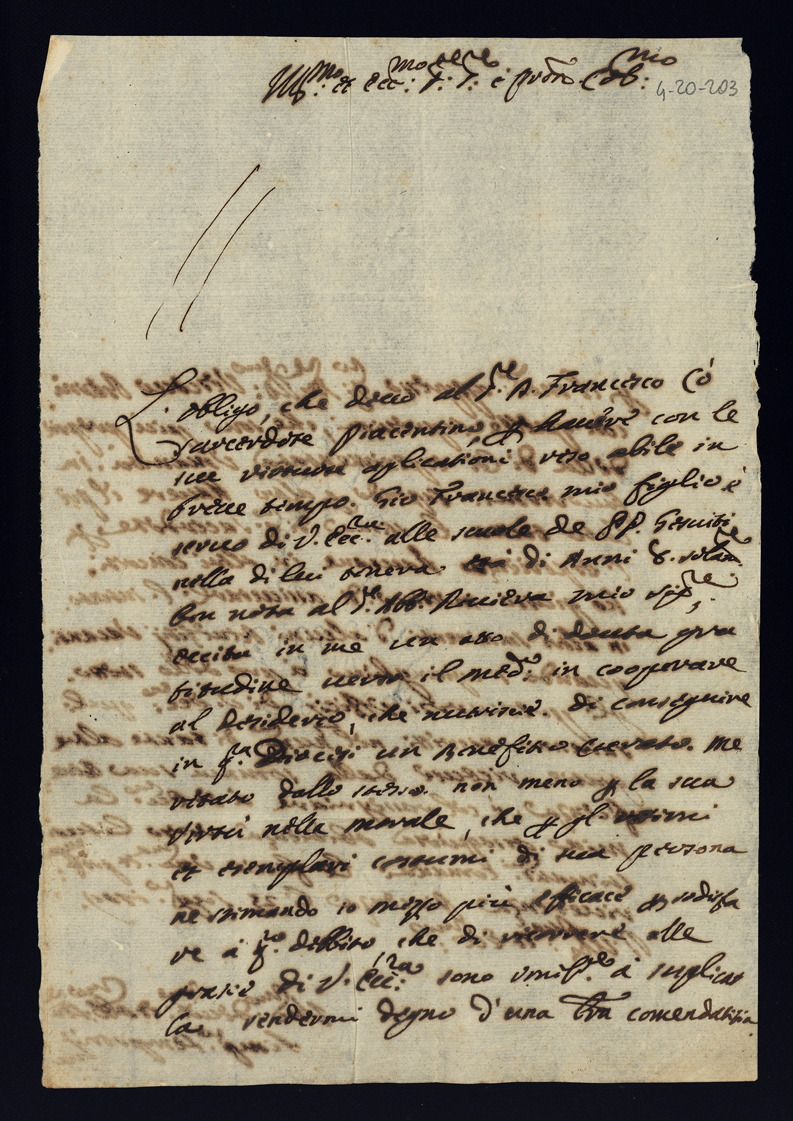 Ill:mo et Ecc:mo Sig:re Sig:re e pron Col:mo
4-20-203
L'obligo, che devo al S.re D. Francesco Cò
sacerdote Piacentino, p havere con le
sue virtuose aplicationi reso abile in
breve tempo. Gio Francesco mio figlio e
servo di V. Ecc:za alle scuole de PP. Gesuiti
nella di lui tenera età di Anni 8. solam.te
ben nota al S.r Abb. Riviera mio
eccita in me un atto di dovuta gra
titudine verso il med.mo in cooperare
al desiderio, che nutrisce. di conseguire
in q.ta Diocesi un Benefitio Curato. me
ritato dallo stesso. non meno p la sua
virtù nella morale, che p gl'ottimi
et esemplari costumi di sua persona
ne stimando io mezzo più efficace p sodisfa
re à q.to debbito, che di ricorrere alle
gratie di V. Ecc:za sono à suplicar
la. rendermi degno d'una lra comendatitia